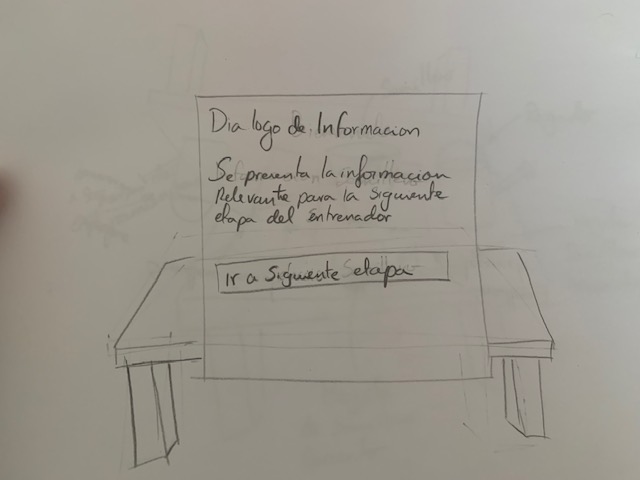 Dialogo de Informacion
Se presenta la informacion
Relevante para la siguiente
etapa del entrenador
Ir a Siguiente etapa